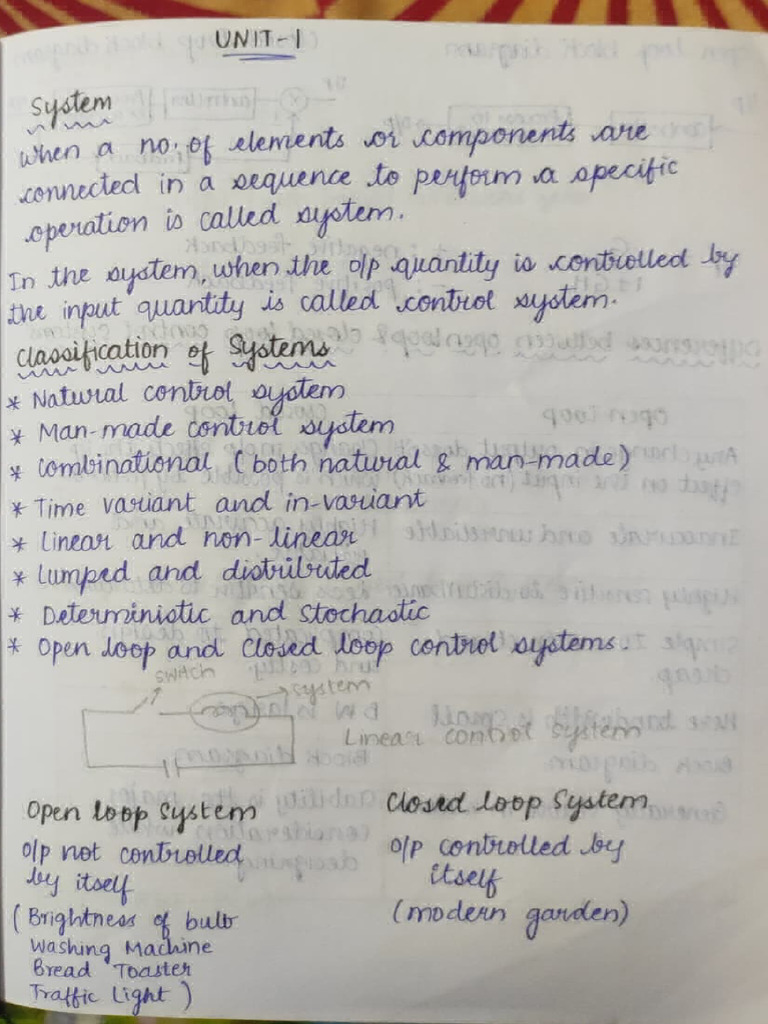 UNIT-1
System
When a no. of elements or components are
connected in a sequence to perform a specific
operation is called system.
In the system, when the o/p quantity is controlled by
the input quantity is called control system.
Classification of Systems
* Natural control system
* Man-made control system
* Combinational (both natural & man-made)
* Time variant and in-variant
* Linear and non-linear
* Lumped and distributed
* Deterministic and Stochastic
* Open loop and Closed loop control systems.
switch
system
Linear control system
Open loop System
o/p not controlled
by itself
(Brightness of bulb
Washing Machine
Bread Toaster
Traffic Light)
Closed loop System
o/p controlled by
itself
(modern garden)